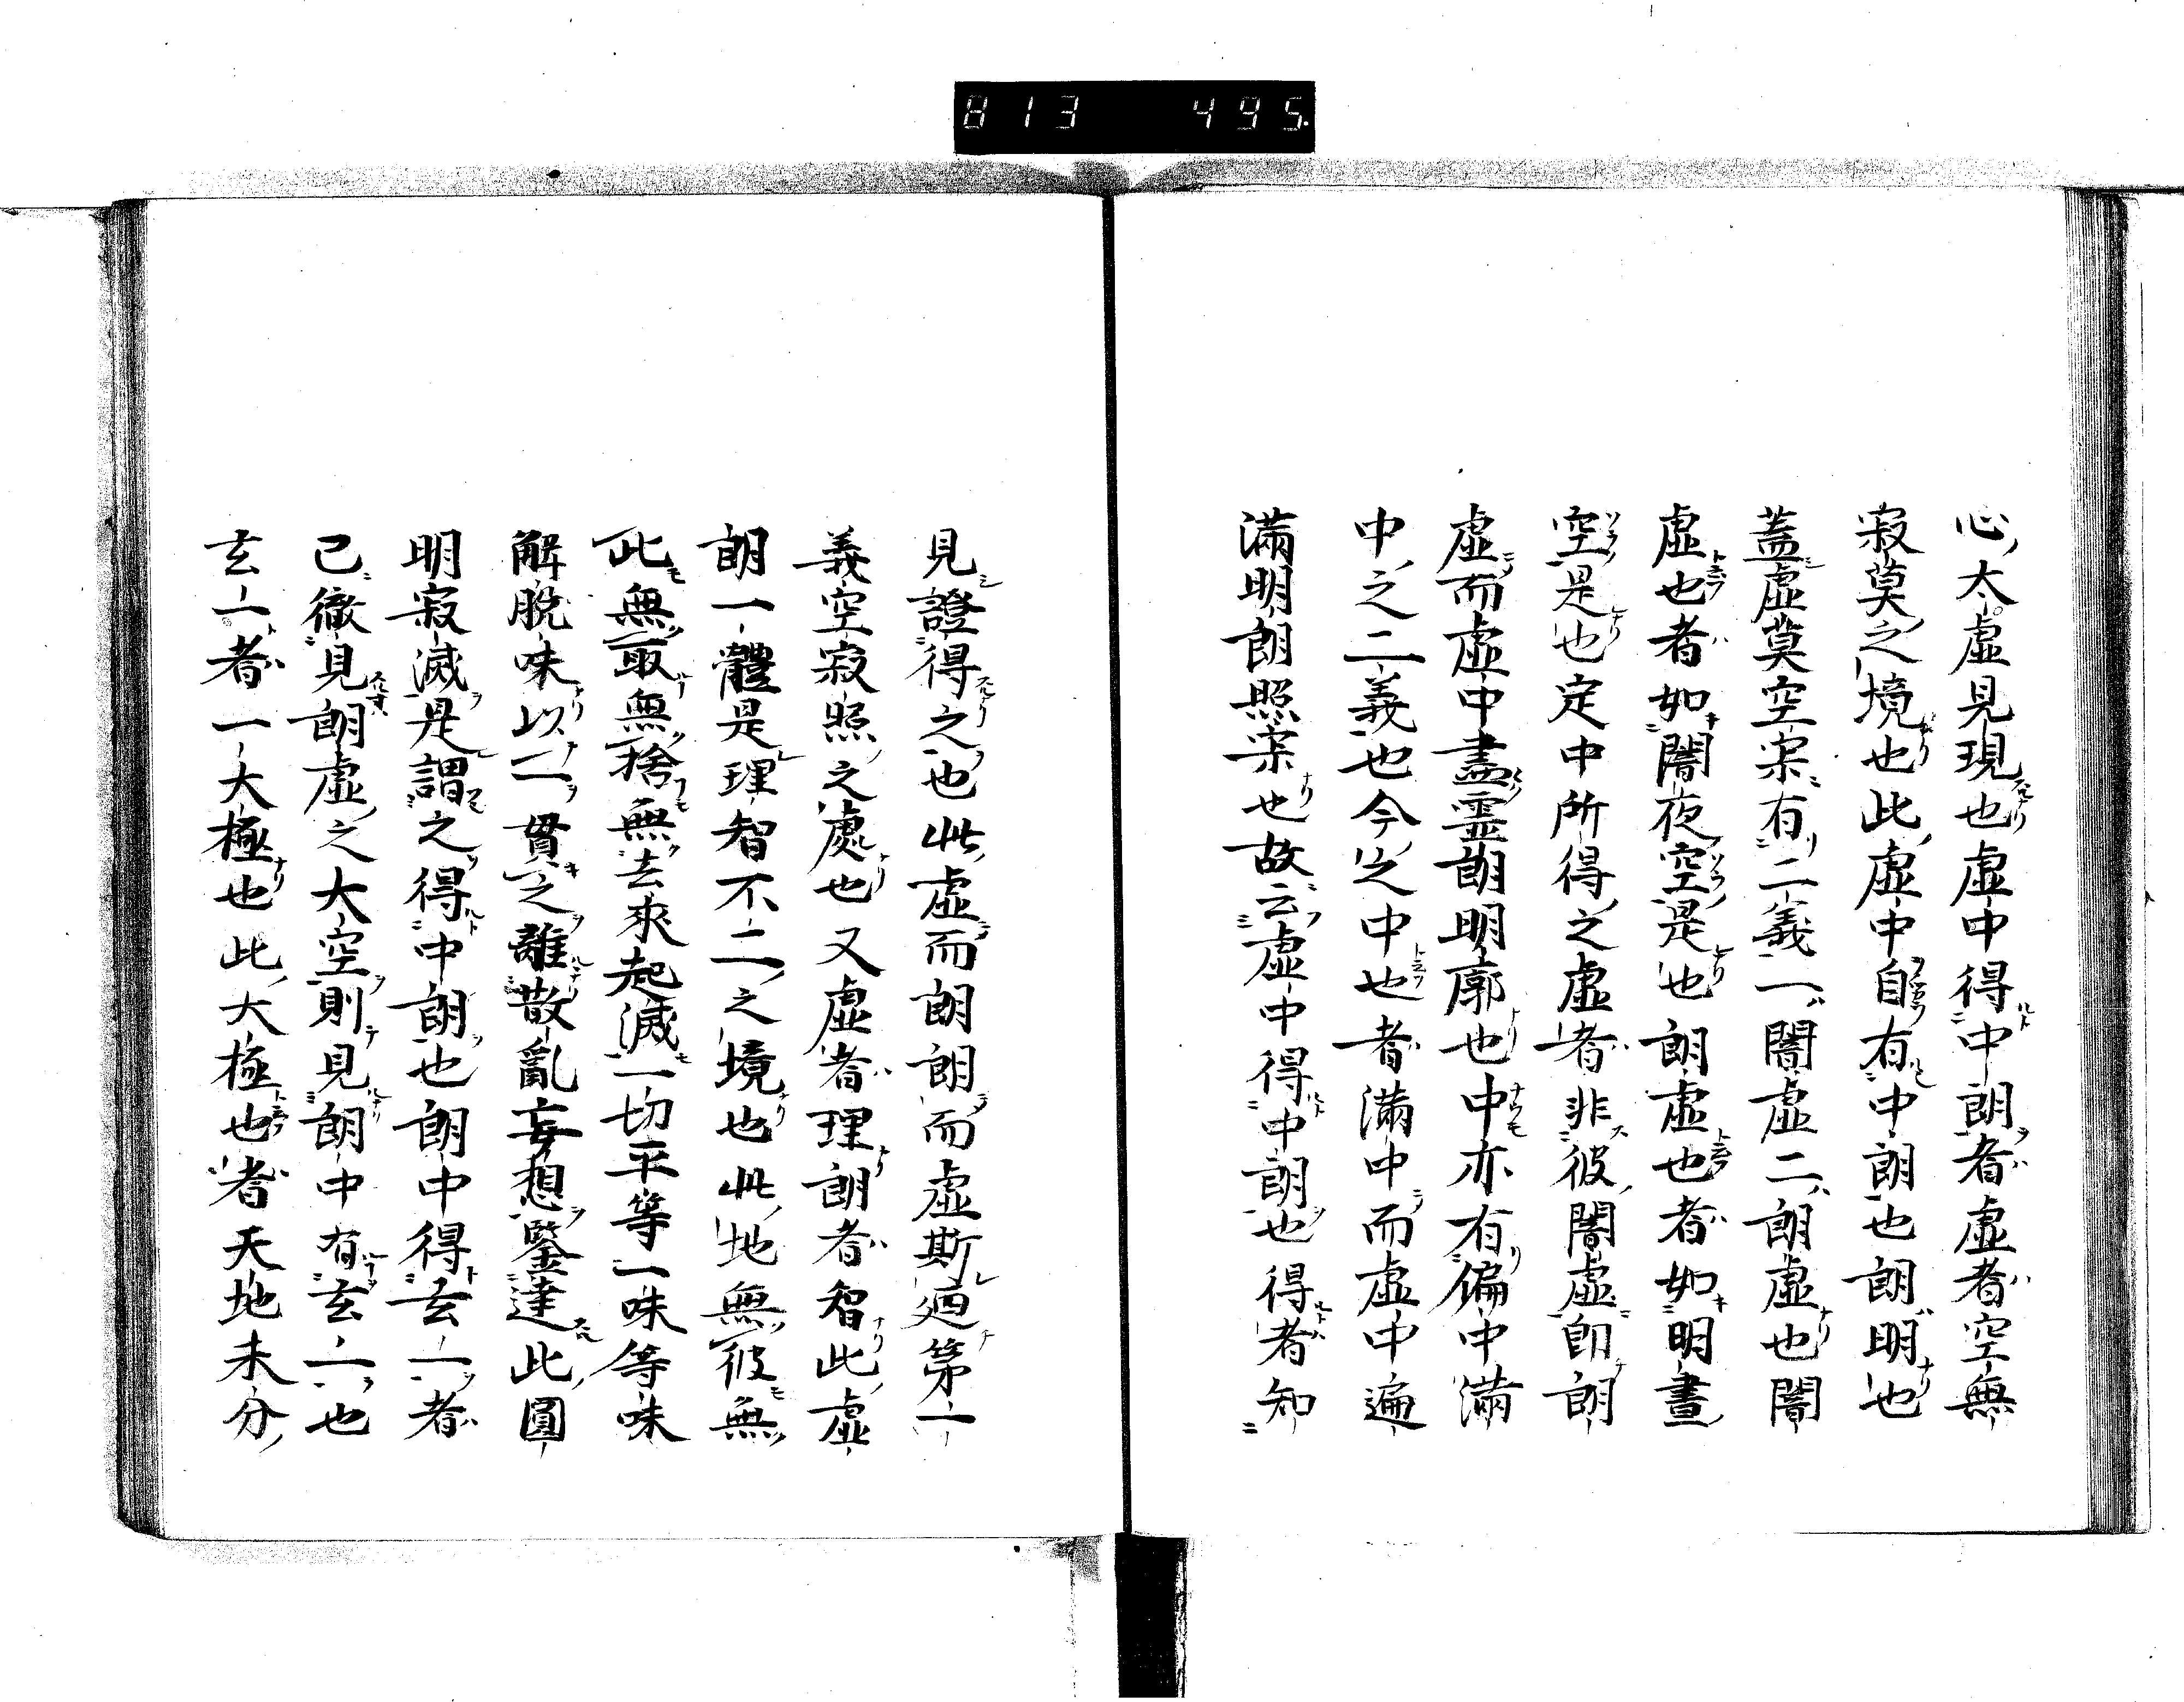 813 495.
心太虛見現也虛中得中朗者虛者空無
寂莫之境也此虛中自有中朗也朗明也
蓋虛莫空寀有二義一闇虛二朗虛也闇
虛也者如闇夜空是也朗虛也者如明晝
空是也定中所得之虛者非彼闇虛即朗
虛而虛中盡靈朗明廓也中亦有偏中滿
中之二義也今之中也者滿中而虛中遍
滿明朗照寀也故云虛中得中朗也得者知
見證得之也此虛而朗朗而虛斯廼第一
義空寂照之處也又虛者理朗者智此虛
朗一體是理智不二之境也此地無彼無
此無取無捨無去來起滅一切平等一味等味
解脫味以一貫之離散亂妄想鑒達此圓
明寂滅是謂之得中朗也朗中得玄一者
已徹見朗虛之大空則見朗中有玄一也
玄一者一大極也此大極也者天地未分